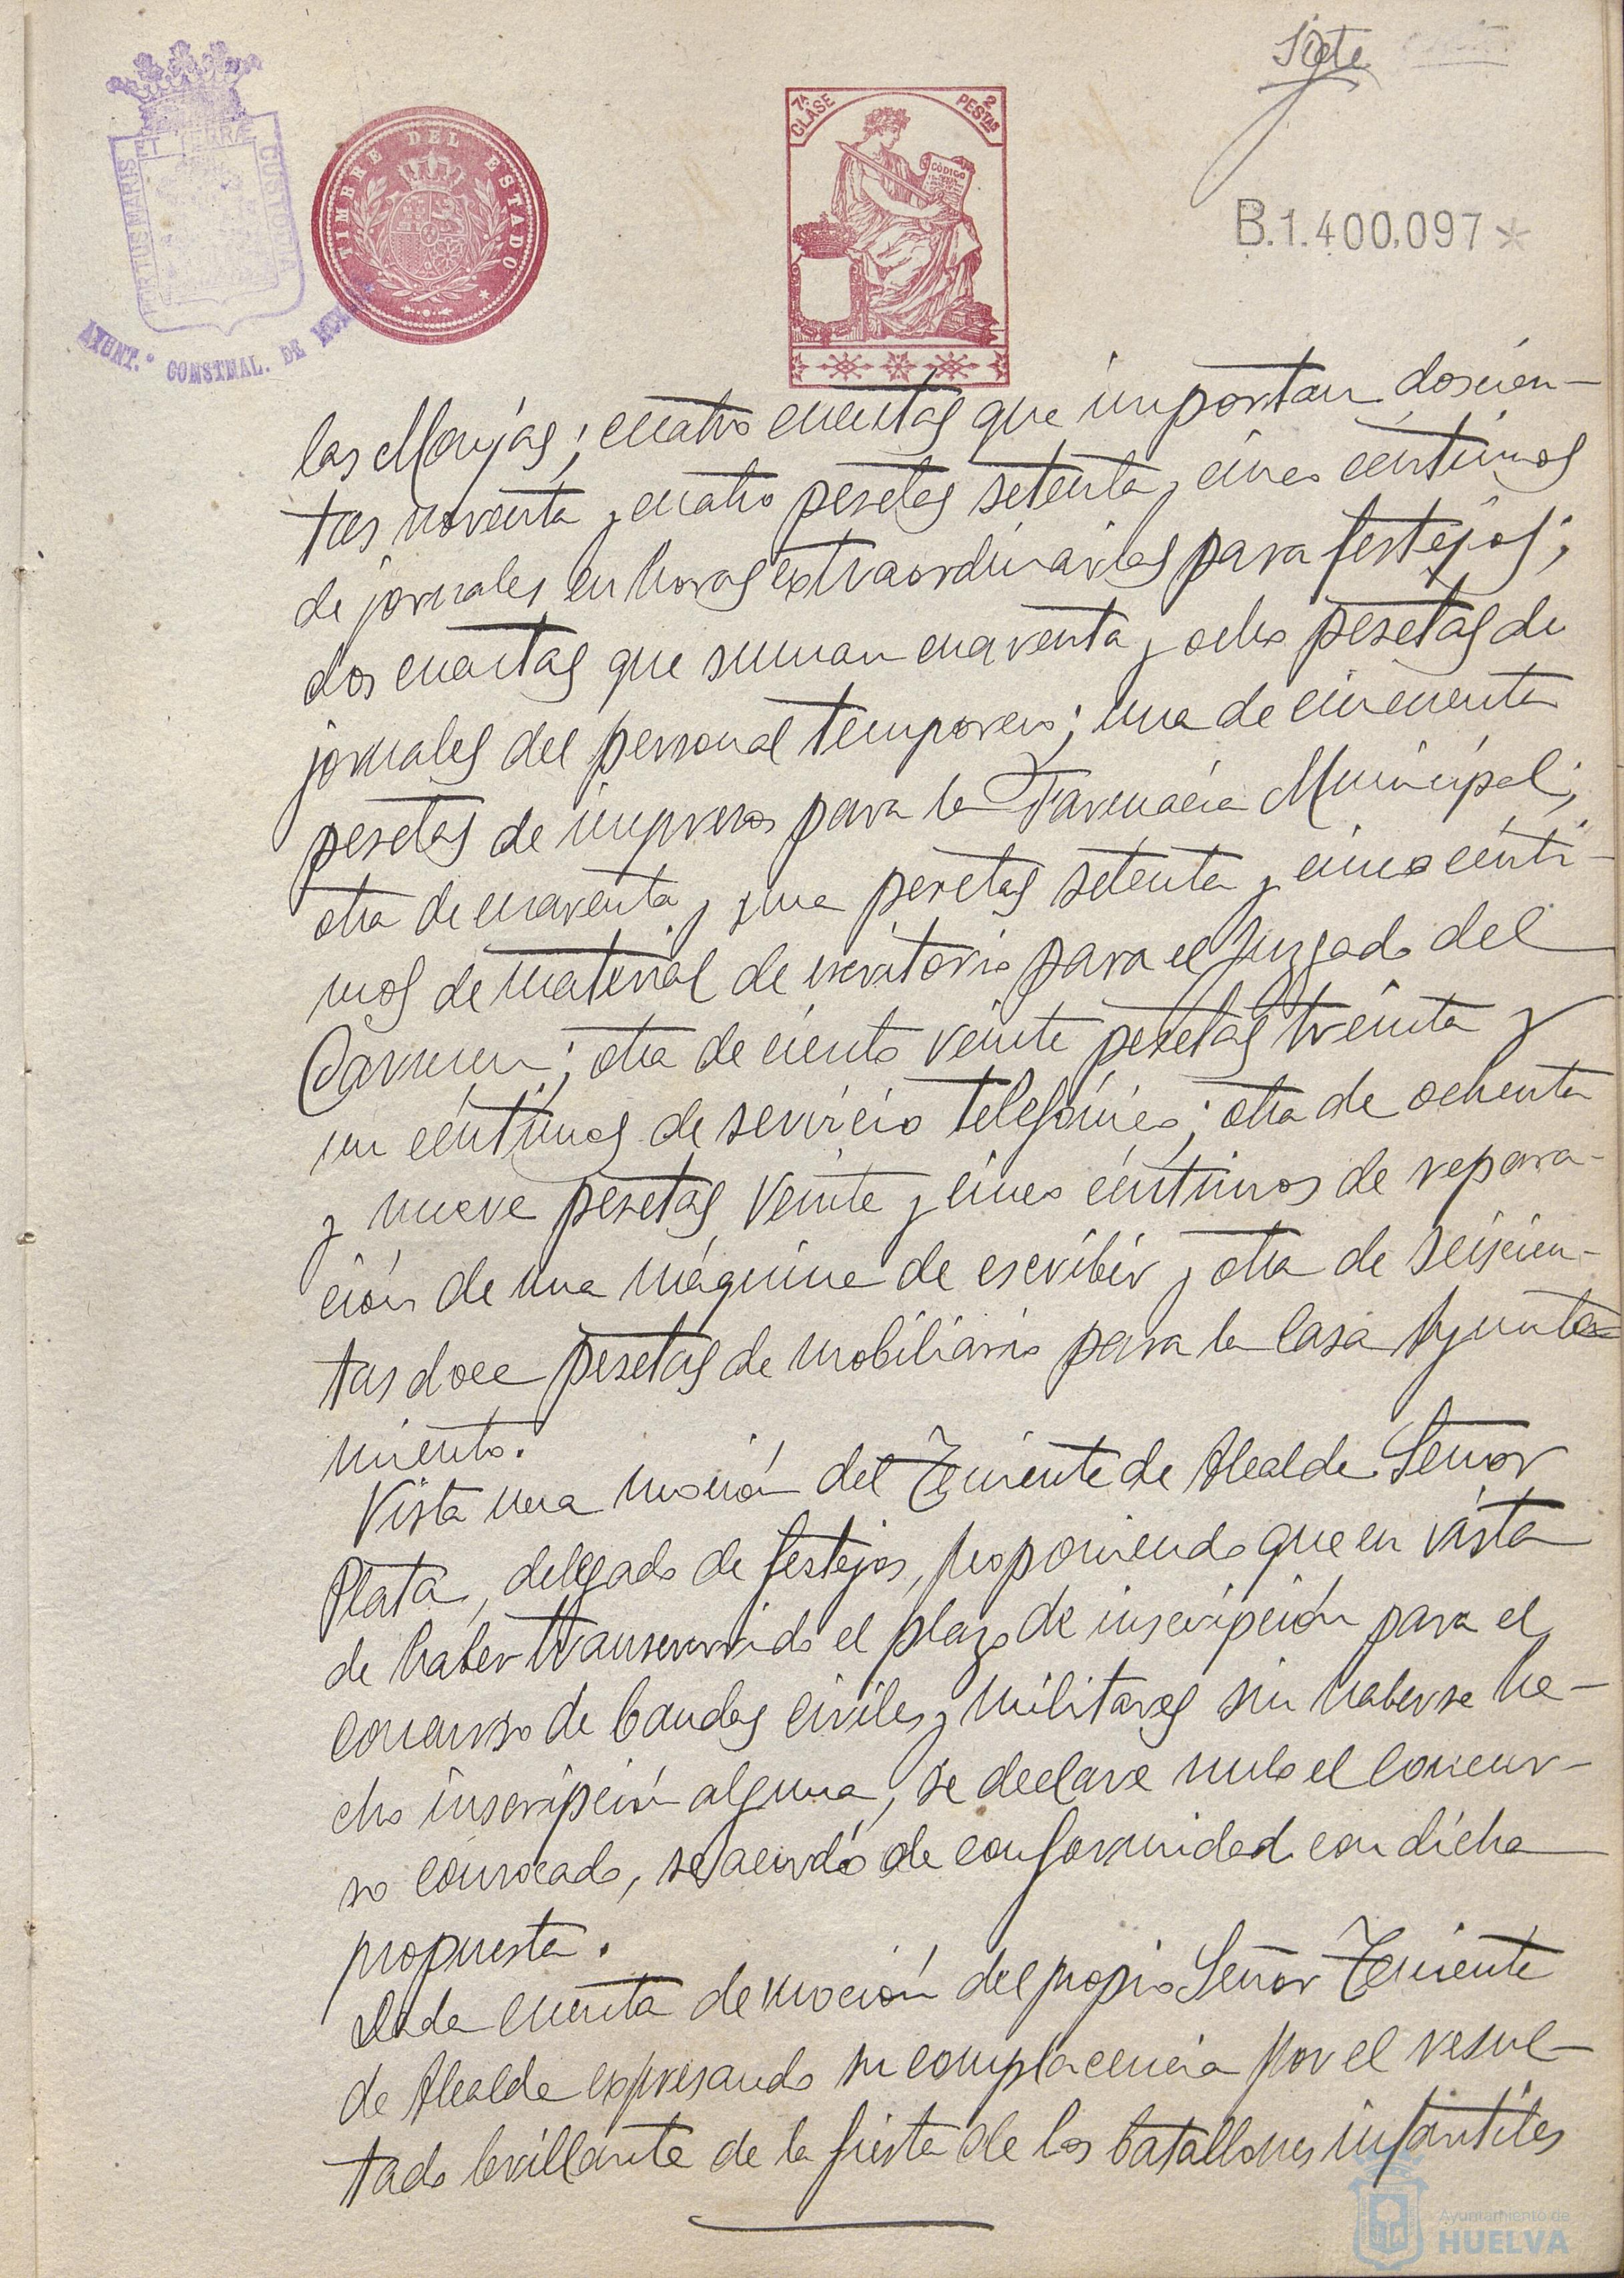 Siete
PORTUS MARIS ET TERRÆ CUSTODIA
AYUNT.º CONSTNAL. DE
TIMBRE DEL ESTADO
7ª CLASE
2 PESTAS
CODIGO
B.1.400.097*
las Monjas; cuatro cuentas que importan doscien-
tas noventa y cuatro pesetas setenta y cinco céntimos
de jornales en horas extraordinarias para festejos;
dos cuentas que suman cuarenta y ocho pesetas de
jornales del personal temporero; una de cincuenta
pesetas de impresos para la Farmacia Municipal;
otra de cuarenta y una pesetas setenta y cinco cénti-
mos de material de escritorio para el Juzgado del
Carmen; otra de ciento veinte pesetas treinta y
un céntimos de servicio telefónico; otra de ochenta
y nueve pesetas veinte y cinco céntimos de repara-
ción de una máquina de escribir y otra de seiscien-
tas doce pesetas de mobiliario para la Casa Ayunta-
miento.
Vista una moción del Teniente de Alcalde Señor
Plata, delegado de festejos, proponiendo que en vista
de haber transcurrido el plazo de inscripción para el
concurso de bandas civiles y militares sin haberse he-
cho inscripción alguna, se declare nulo el concur-
so convocado, se acordó de conformidad con dicha
propuesta.
Dada cuenta de moción del propio Señor Teniente
de Alcalde expresando su complacencia por el resul-
tado brillante de la fiesta de los batallones infantiles
Ayuntamiento de
HUELVA